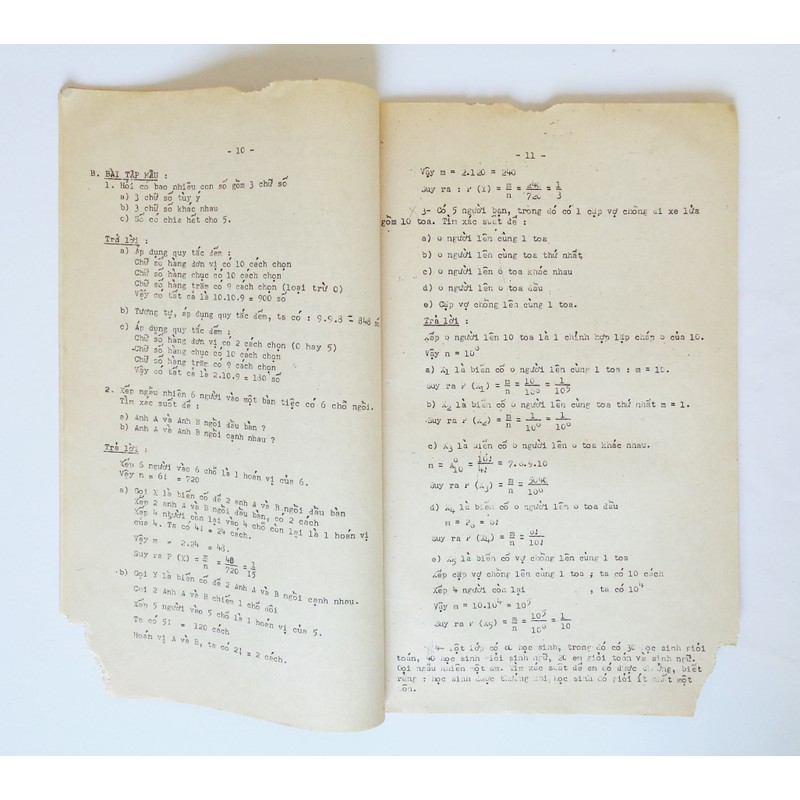 - 10 -
B. BÀI TẬP MẪU :
1. Hỏi có bao nhiêu con số gồm 3 chữ số
a) 3 chữ số tùy ý
b) 3 chữ số khác nhau
c) Số có chia hết cho 5.
Trả lời :
a) Áp dụng quy tắc đếm :
Chữ số hàng đơn vị có 10 cách chọn
Chữ số hàng chục có 10 cách chọn
Chữ số hàng trăm có 9 cách chọn (loại trừ 0)
Vậy có tất cả là 10.10.9 = 900 số
b) Tương tự, áp dụng quy tắc đếm, ta có : 9.9.8 = 848 số
c) Áp dụng quy tắc đếm :
Chữ số hàng đơn vị có 2 cách chọn (0 hay 5)
Chữ số hàng chục có 10 cách chọn
Chữ số hàng trăm có 9 cách chọn
Vậy có tất cả là 2.10.9 = 180 số
2. Xếp ngẫu nhiên 6 người vào một bàn tiệc có 6 chỗ ngồi.
Tìm xác suất để :
a) Anh A và Anh B ngồi đầu bàn ?
b) Anh A và Anh B ngồi cạnh nhau ?
Trả lời :
Xếp 6 người vào 6 chỗ là 1 hoán vị của 6.
Vậy n = 6! = 720
a) Gọi X là biến cố để 2 anh A và B ngồi đầu bàn
Xếp 2 anh A và B ngồi đầu bàn, có 2 cách
Xếp 4 người còn lại vào 4 chỗ còn lại là 1 hoán vị
của 4. Ta có 4! = 24 cách.
Vậy m = 2.24 = 48.
Suy ra P (X) = m/n = 48/720 = 1/15
b) Gọi Y là biến cố để 2 Anh A và B ngồi cạnh nhau.
Coi 2 Anh A và B chiếm 1 chỗ đôi
Xếp 5 người vào 5 chỗ là 1 hoán vị của 5.
Ta có 5! = 120 cách
Hoán vị A và B, ta có 2! = 2 cách.
- 11 -
Vậy m = 2.120 = 240
Suy ra : P (Y) = m/n = 240/720 = 1/3
3- Có 5 người bạn, trong đó có 1 cặp vợ chồng đi xe lửa
gồm 10 toa. Tìm xác suất để :
a) 6 người lên cùng 1 toa
b) 6 người lên cùng toa thứ nhất
c) 6 người lên 6 toa khác nhau
d) 6 người lên 6 toa đầu
e) Cặp vợ chồng lên cùng 1 toa.
Trả lời :
Xếp 6 người lên 10 toa là 1 chỉnh hợp lặp chập 6 của 10.
Vậy n = 10⁶
a) X₁ là biến cố 6 người lên cùng 1 toa : m = 10.
Suy ra P (X₁) = m/n = 10/10⁶ = 1/10⁵
b) X₂ là biến cố 6 người lên cùng toa thứ nhất m = 1.
Suy ra P (X₂) = m/n = 1/10⁶ = 1/10⁶
c) X₃ là biến cố 6 người lên 6 toa khác nhau.
= 10!/4! =
Suy ra P (X₃) = m/n =
d) X₄ là biến cố 6 người lên 6 toa đầu
m = P₆ = 6!
Suy ra P (X₄) = m/n = 6!/10!
e) X₅ là biến cố vợ chồng lên cùng 1 toa
Xếp cặp vợ chồng lên cùng 1 toa ; ta có 10 cách
Xếp 4 người còn lại , ta có 10⁴
Vậy m = 10.10⁴ = 10⁵
Suy ra P (X₅) = m/n = 10⁵/10⁶ = 1/10
4- Một lớp có 60 học sinh, trong đó có 30 học sinh giỏi
toán, 40 học sinh giỏi sinh ngữ, 20 em giỏi toán và sinh ngữ.
Gọi ngẫu nhiên một em. Tìm xác suất để em đó được thưởng, biết
rằng : học sinh được thưởng khi học sinh đó giỏi ít nhất một
môn.